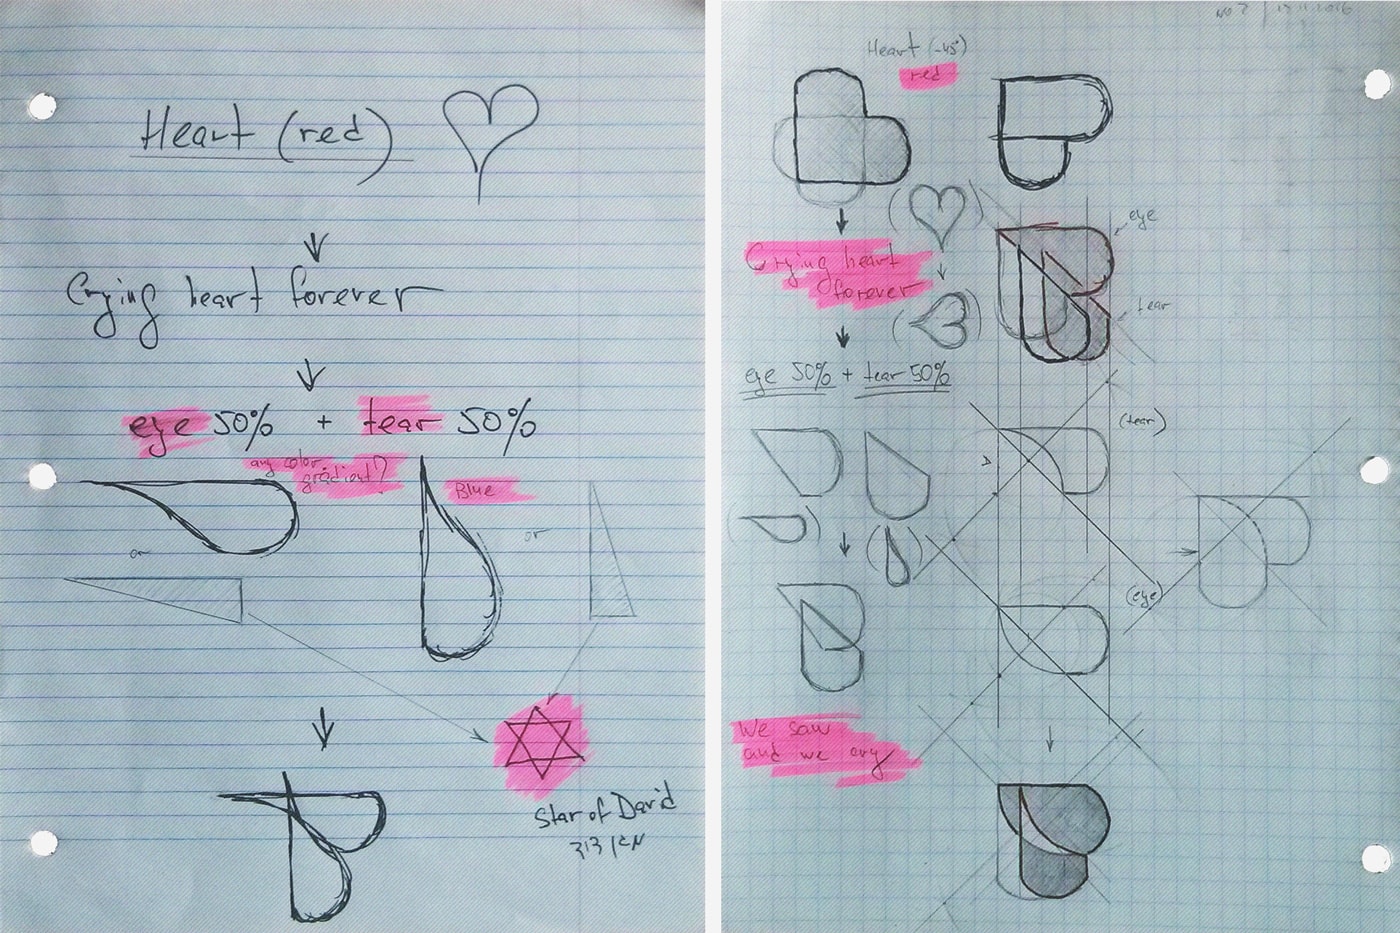 Heart (red)
Crying heart forever
eye 50% + tear 50%
any color
gradient?
Blue
or
or
Star of David
מגן דוד
Heart (-45°)
red
eye
Crying heart
forever
tear
eye 50% + tear 50%
(tear)
(eye)
We saw
and we cry